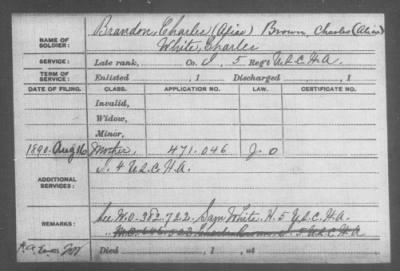 Brandon, Charles (Alias) Brown, Charles (Alias)
NAME OF SOLDIER: White, Charles
SERVICE: Late rank, Co. I, 5 Reg't U.S.C.H.A.
TERM OF SERVICE: Enlisted , 1 Discharged , 1
DATE OF FILING. CLASS. APPLICATION NO. LAW. CERTIFICATE NO.
Invalid,
Widow,
Minor,
1890 Aug 16 Mother, 471.046 J. O
ADDITIONAL SERVICES: I. 4 U.S.C.H.A.
REMARKS: See W.O. 382.722. Sam White. H. 5 U.S.C.H.A.
I 5 U.S.C.H.A.
Died , 1 , at